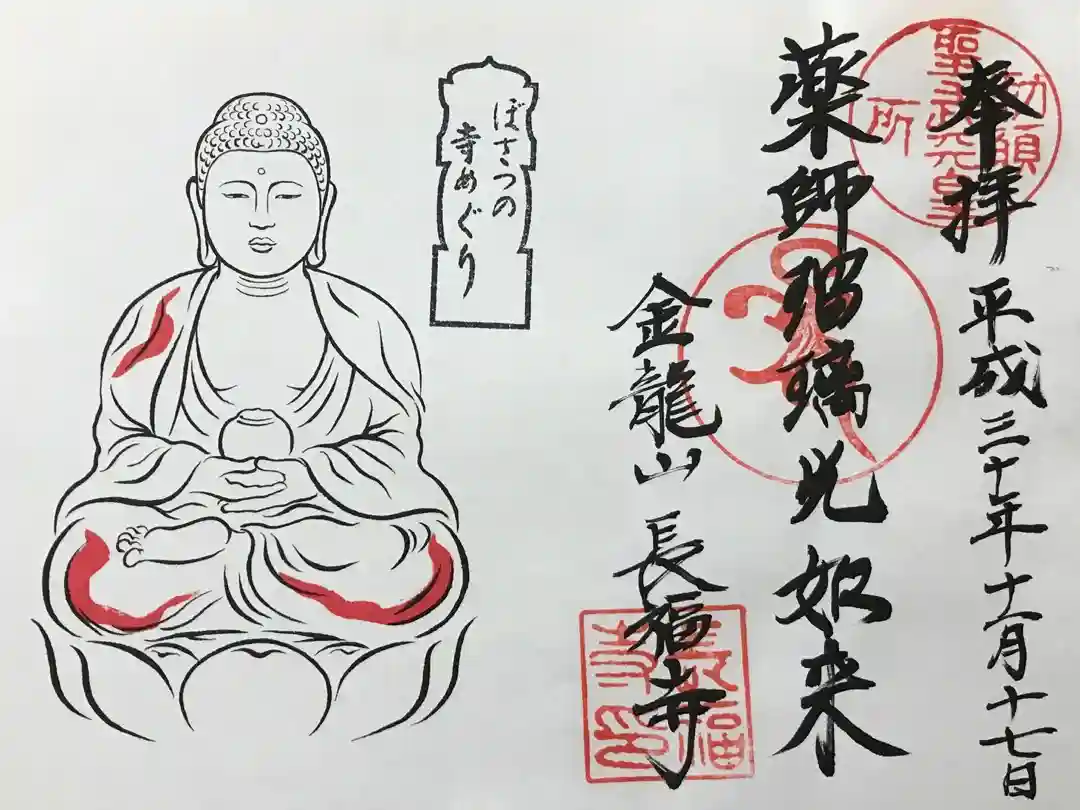 奉拝 平成三十年十一月十七日
勅願
聖武天皇
所
薬師瑠璃光如来
金龍山 長福寺
長福
寺印
ぼさつの
寺めぐり